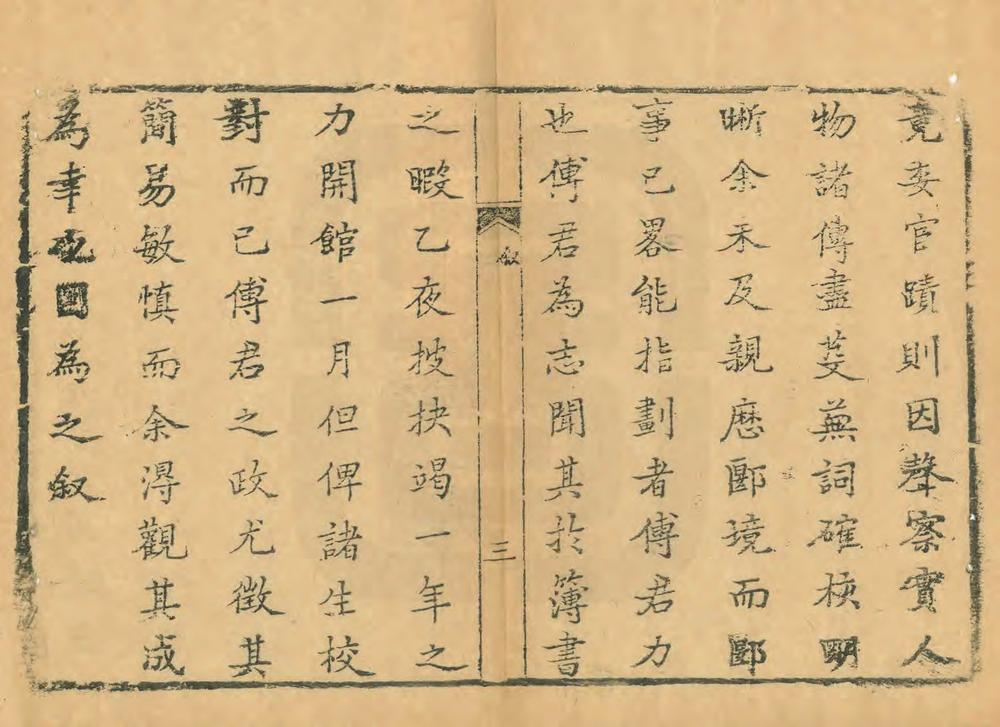 竟委官蹟則因聲察實人
物諸傳盡芟蕪詞確核明
晰余未及親歷郾境而郾
事已畧能指劃者傅君力
也傅君為志聞其於簿書
叙
三
之暇乙夜披抉竭一年之
力開館一月但俾諸生校
對而已傅君之政尤徵其
簡易敏慎而余得觀其成
為幸也因為之叙